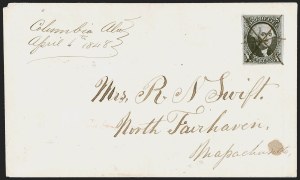 Columbia Ala
April 6th 1848
Mrs. R. N Swift.
North Fairhaven.
Massachusetts